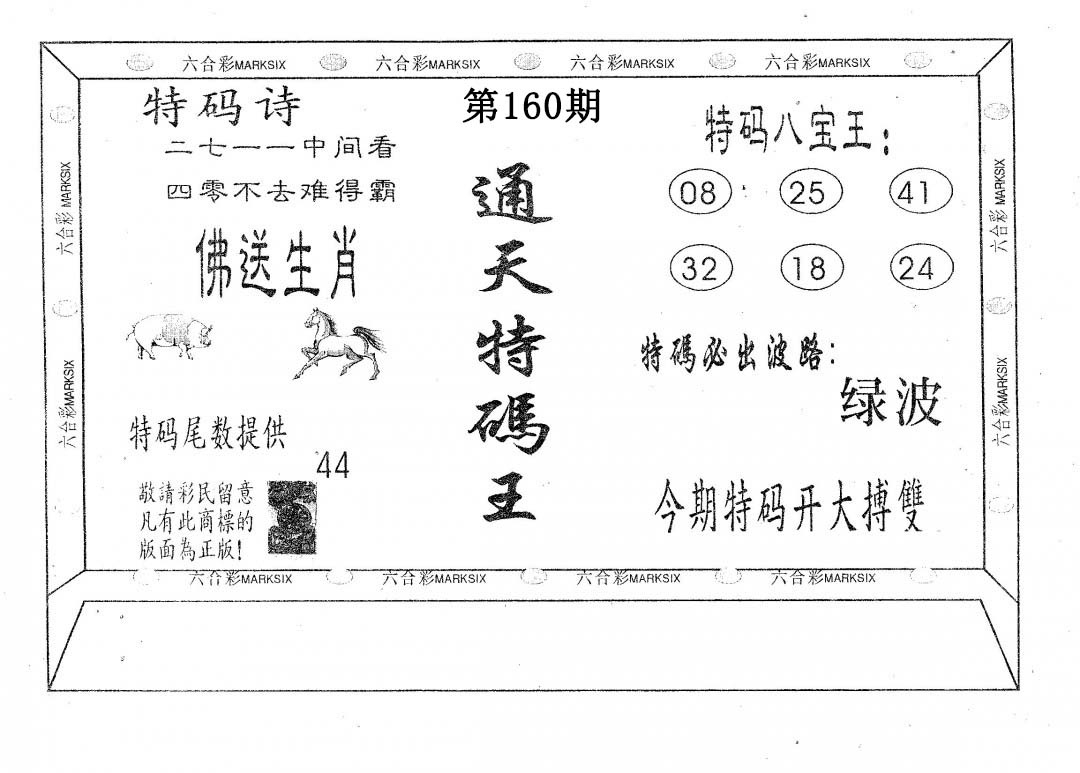 六合彩MARKSIX 六合彩MARKSIX 六合彩MARKSIX 六合彩MARKSIX
特码诗
二七一一中间看
四零不去难得霸
佛送生肖
特码尾数提供
44
敬請彩民留意
凡有此商標的
版面為正版!
第160期
通天特碼王
特码八宝王:
08 25 41
32 18 24
特碼必出波路:
绿波
今期特码开大搏雙
六合彩 MARKSIX
六合彩MARKSIX
六合彩 MARKSIX
六合彩MARKSIX
六合彩MARKSIX 六合彩MARKSIX 六合彩MARKSIX 六合彩MARKSIX